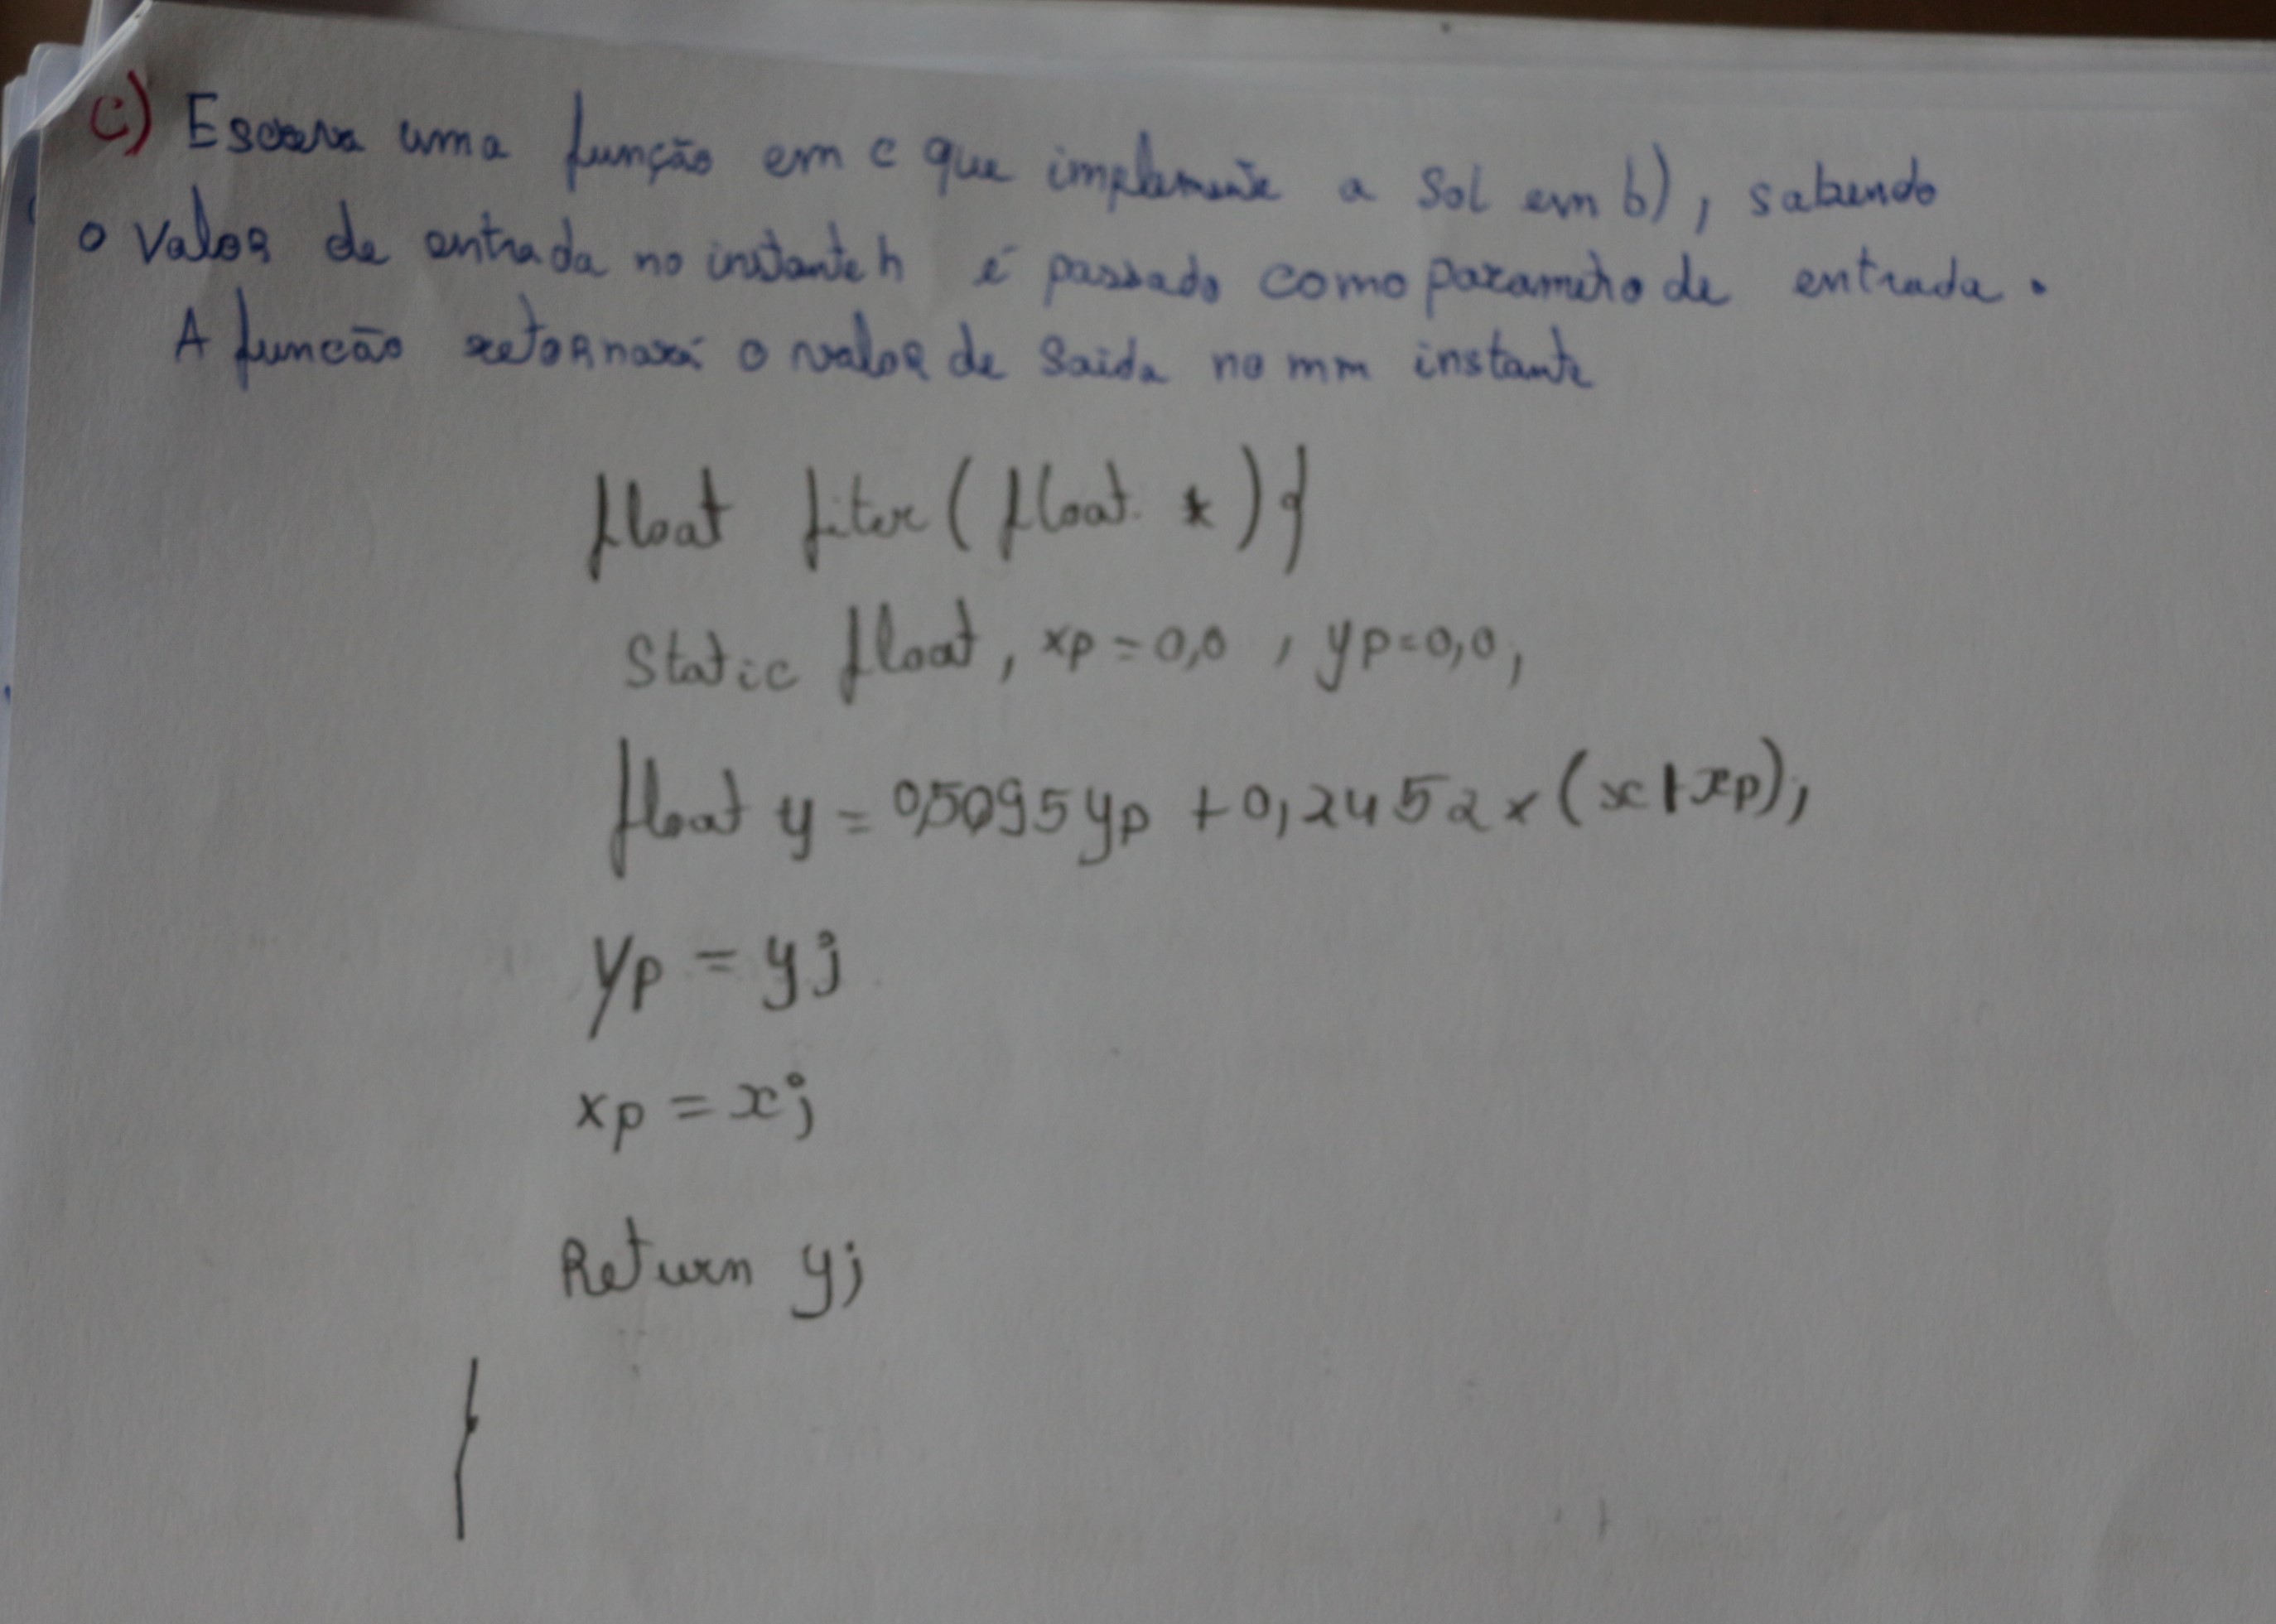 c) Escreva uma função em c que implemente a Sol em b), sabendo
o valor de entrada no instante h é passado como parametro de entrada.
A funcão retornará o valor de saida no mm instante
float fiter (float *) {
Static float, xp = 0,0 , yp = 0,0,
float y = 0,5095 yp + 0,2452 x (x + xp),
yp = y;
xp = x;
Return y;
}